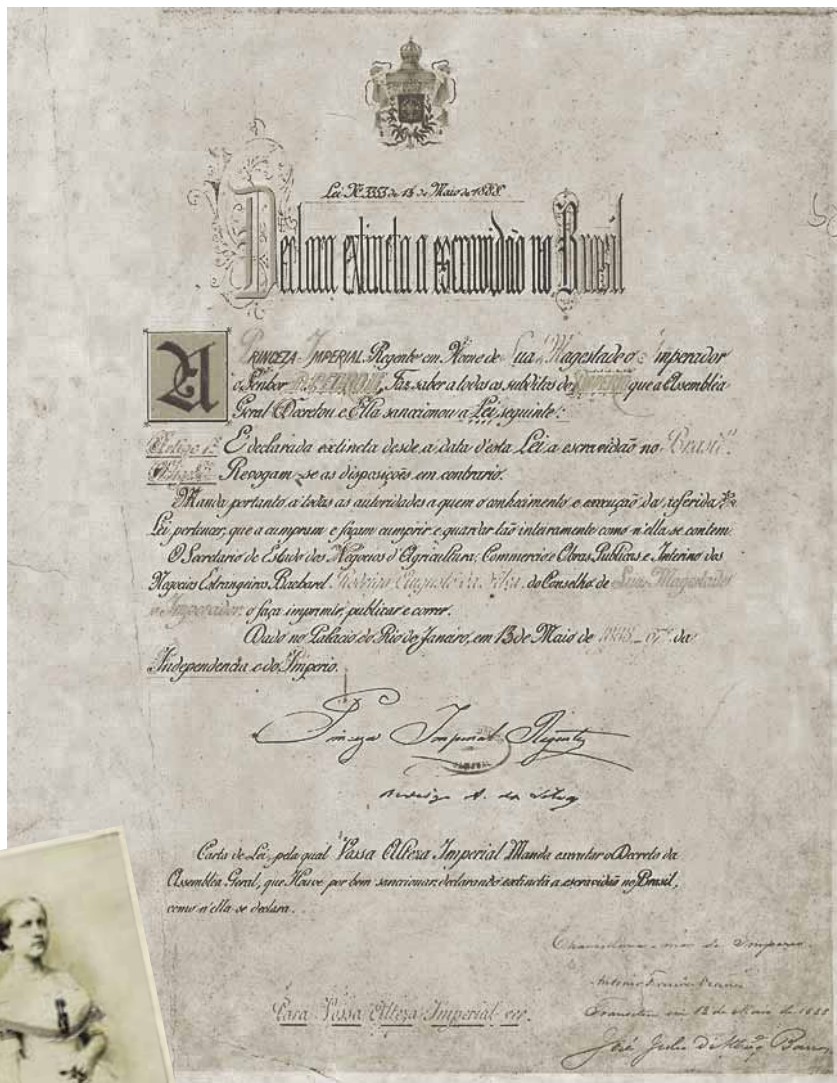 Lei Nº 3353 de 13 de Maio de 1888.
Declara extincta a escravidão no Brasil
A PRINCEZA IMPERIAL Regente em Nome de Sua Magestade o Imperador
o Senhor D. PEDRO II, Faz saber a todos os subditos do IMPERIO que a Assembléa
Geral Decretou e Ella sanccionou a Lei seguinte:
Artigo 1º É declarada extincta desde a data d'esta Lei a escravidão no Brasil.
Revogam-se as disposições em contrario.
Manda portanto a todas as autoridades a quem o conhecimento e execução da referida
Lei pertencer, que a cumpram e façam cumprir e guardar tão inteiramente como n'ella se contem.
O Secretario de Estado dos Negocios d'Agricultura, Commercio e Obras Publicas e Interino dos
Negocios Estrangeiros Bacharel Rodrigo Augusto da Silva do Conselho de Sua Magestade
o Imperador, o faça imprimir, publicar e correr.
Dado no Palacio do Rio de Janeiro, em 13 de Maio de 1888 - 67º da
Independencia e do Imperio.
Princeza Imperial Regente
Rodrigo A. da Silva
Carta de Lei, pela qual Vossa Alteza Imperial Manda executar o Decreto da
Assembléa Geral, que Houve por bem sanccionar, declarando extincta a escravidão no Brasil,
como n'ella se declara.
Chancellaria-mór do Imperio.
Antonio Ferreira Vianna
Para Vossa Alteza Imperial ver.
Transitou em 13 de Maio de 1888
José Julio d'Albuqº Barros